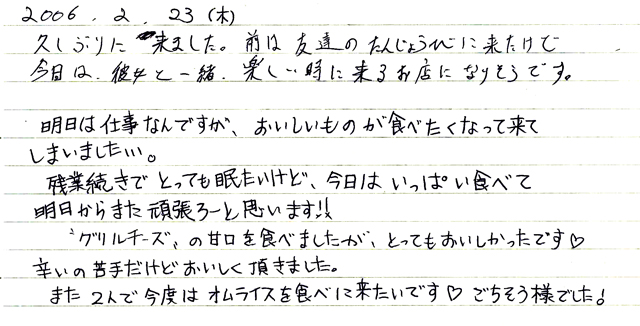 2006. 2. 23 (木)
久しぶりに来ました。前は友達のたんじょうびに来たけど
今日は、彼女と一緒、楽しい時に来るお店になりそうです。
明日は仕事なんですが、おいしいものが食べたくなって来て
しまいました…。
残業続きでとっても眠たいけど、今日はいっぱい食べて
明日からまた頑張ろーと思います!!
"グリルチーズ"の甘口を食べましたが、とってもおいしかったです♡
辛いの苦手だけどおいしく頂きました。
また2人で今度はオムライスを食べに来たいです♡ ごちそう様でした!